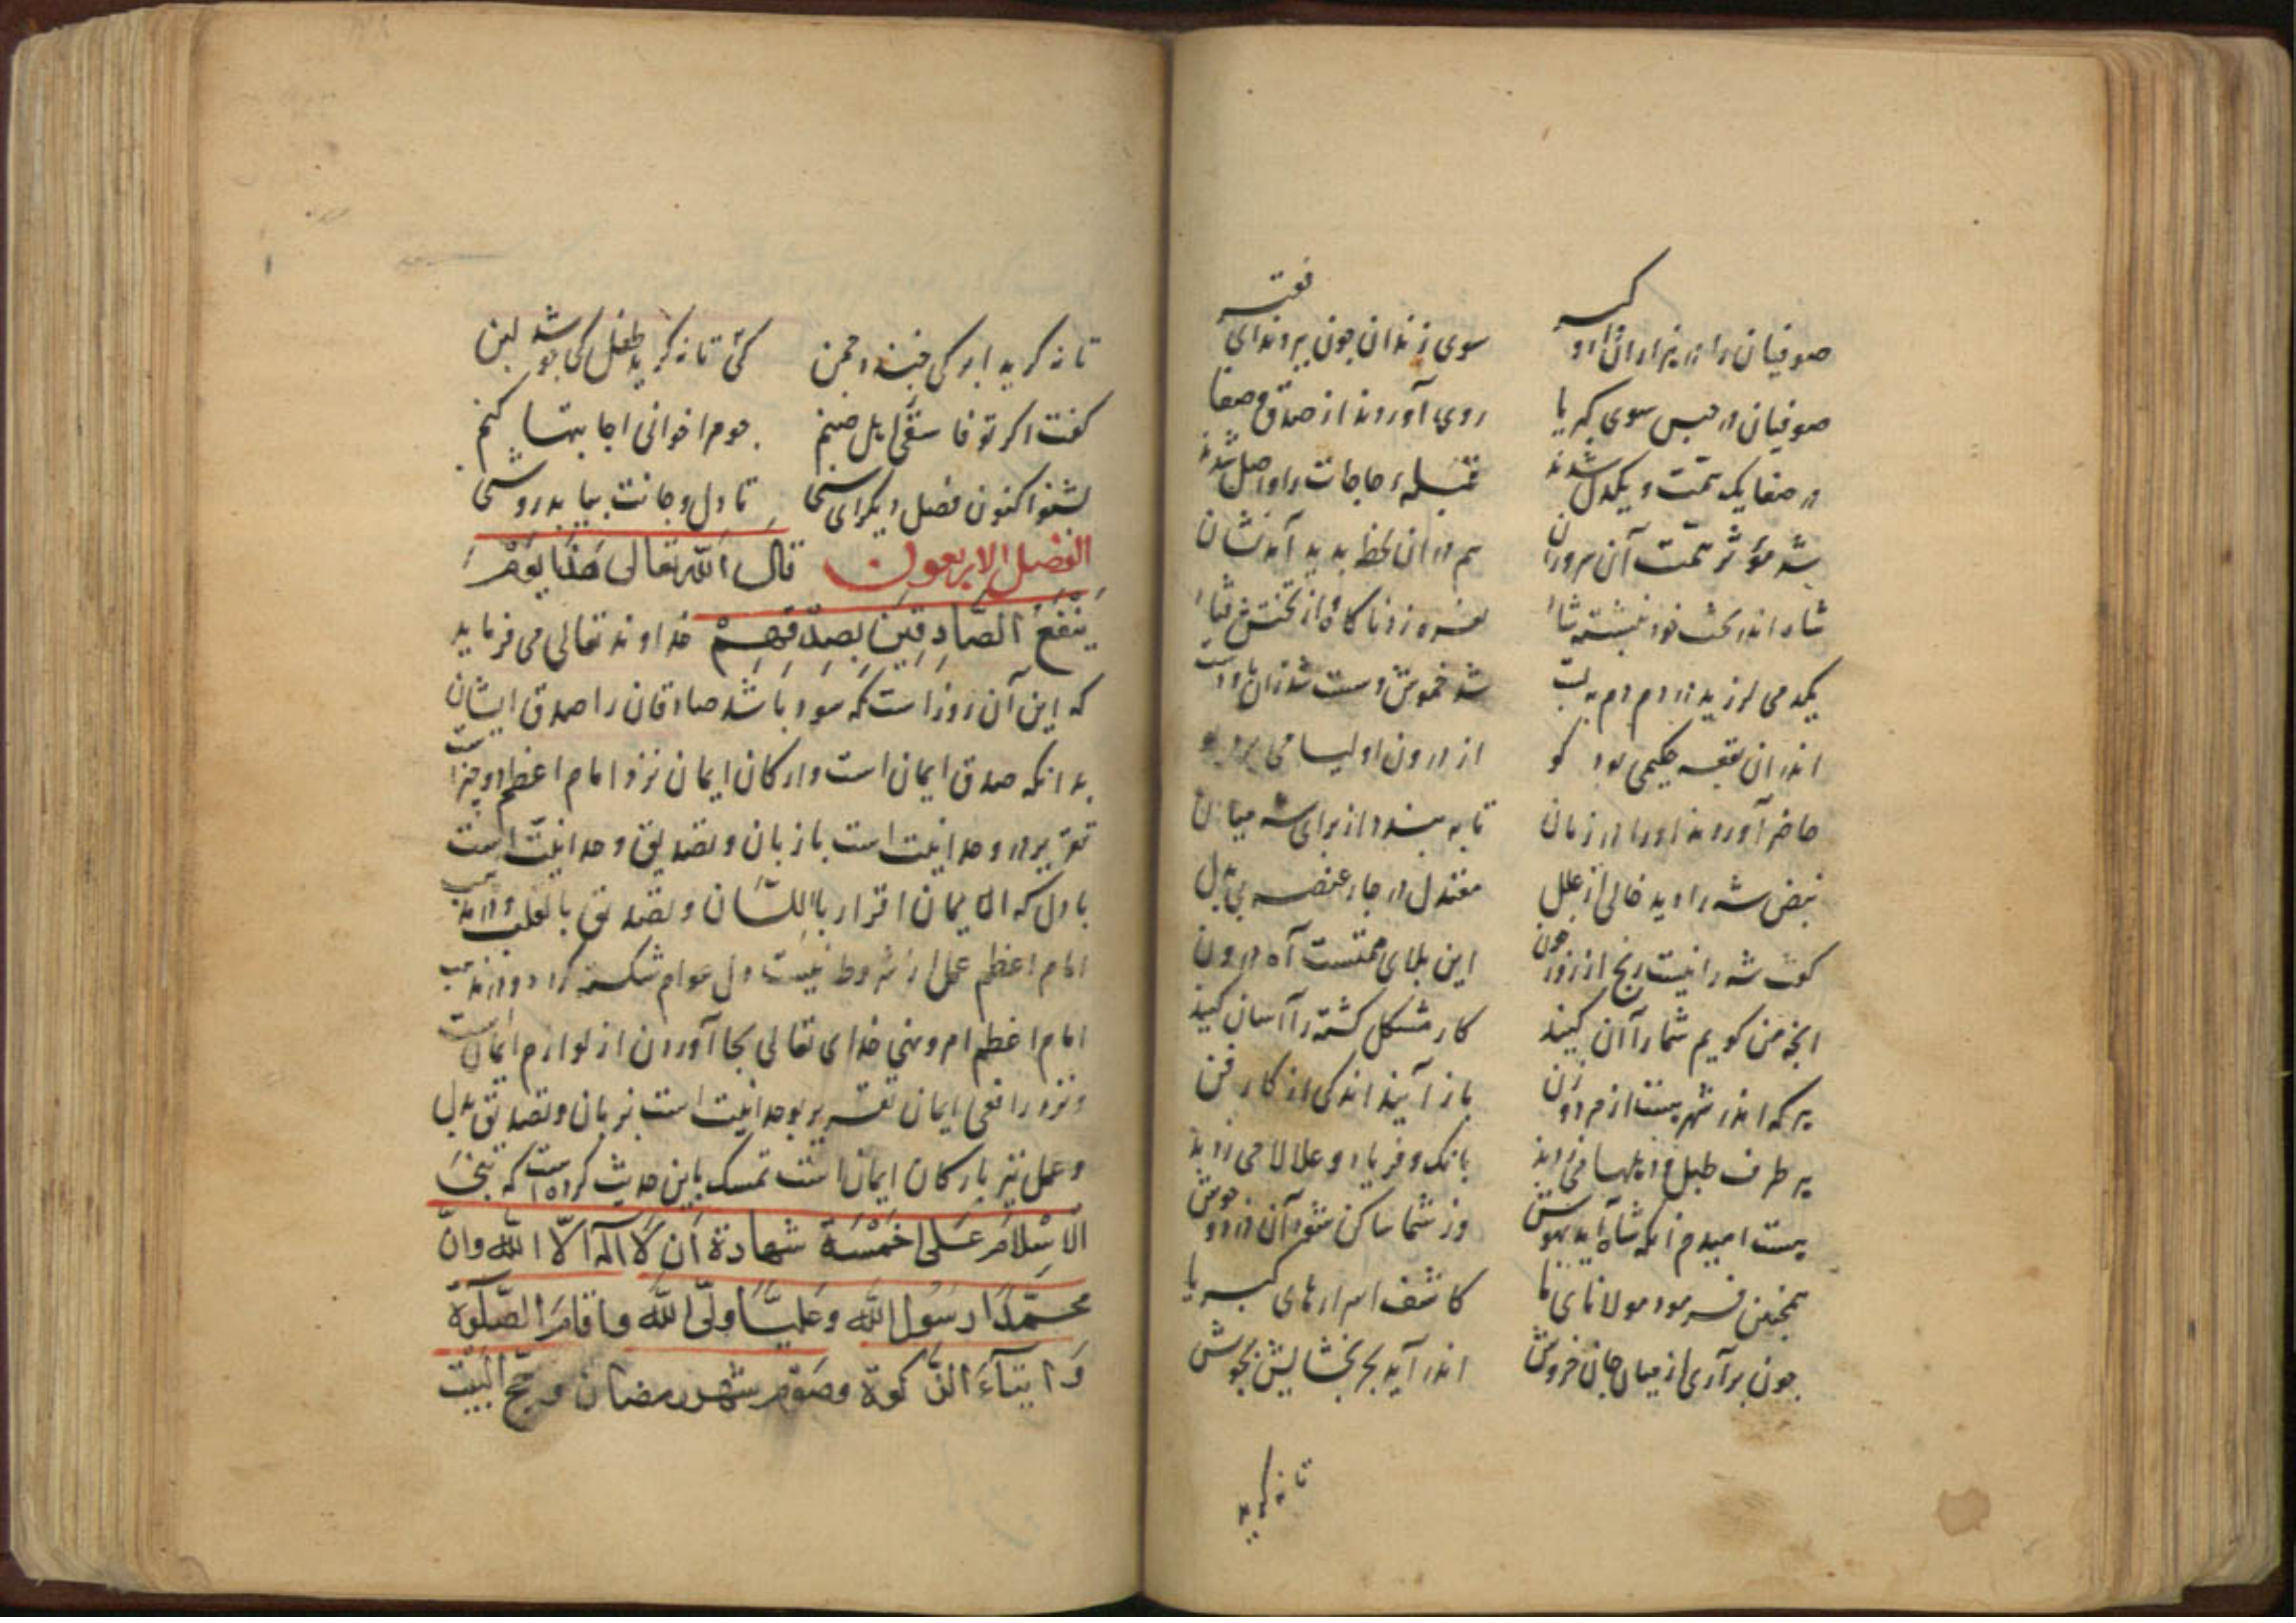 صوفیان را در هزاران دار و کبیر سوی زندان چون برند ای فقیر
صوفیان در حبس سوی کبریا روی آوردند از صدق و صفا
در صفا یک همت و یکدل شدند قبلهٔ حاجات را واصل شدند
شد مؤثر همت آن سروران هم در ان لحظ بدید آمد نشان
شاه اندر تخت خود بنشسته شاد
یکدمی لرزید در دم دم به بست شد خموش و سست شد زان
اندران بقعه حکیمی بود کو از درون اولیا می برد بو
حاضر آوردند او را در زمان تا به بندد از برای شه میان
نبض شه را دید خالی از علل معتدل در چار عنصر بی بدل
گفت شه را نیست رنج از زور خون این بلای همتست آه درون
انچه من گویم شما را آن کنید کار مشکل گشته را آسان کنید
هر که اندر شهر هست از مرد و زن باز آیند اندکی از کار فن
هر طرف طبل و دهلها می زدند بانک و فریاد و علالا می زدند
هست امیدم زانکه شاه آید بهوش وز شما ساکن شود آن درد و جوش
همچنین فرمود مولانای ما کاشف اسرارهای کبریا
چون برآری از میان جان خروش اندر آید بحر بخشایش بجوش
تا نه گرید
تا نه گرید ابر کی خندد چمن کی تا نه گرید طفل کی جوشد لبن
گفت اگر تو فاسقی اهل صنم چو مرا خوانی اجابتها کنم
بشنو اکنون فصل دیگر ای سخی تا دل و جانت بیابد روشنی
الفصل الاربعون قال الله تعالی هَذَا یَوْمُ
یَنْفَعُ الصَّادِقِینَ بِصِدْقِهِمْ خداوند تعالی می فرماید
که این آن روز است که سود باشد صادقان را صدق ایشان
بدانکه صدق ایمان است و ارکان ایمان نزد امام اعظم دو چیز است
تقریر در وحدانیت است با زبان و تصدیق وحدانیت است
با دل که الایمان اقرار باللسان و تصدیق بالقلب و در مذهب
امام اعظم عمل از شروط نیست دل عوام شکسته گردد و در مذهب
امام اعظم امر و نهی خدای تعالی بجا آوردن از لوازم ایمان است
و نزد رافعی ایمان تقریر بوحدانیت است بزبان و تصدیق بدل
و عمل نیز بارکان ایمان است تمسک باین حدیث کرده است که بُنِیَ
الْاِسْلَامُ عَلَی خَمْسَةٍ شهادة اَن لَا اله الّا الله وانّ
محمّدًا رسول الله وعلیّا ولیّ الله واقامَ الصّلوة
وَایتآءَ الزّکوة وصَوْم شهر رمضان وحجّ البَیْت